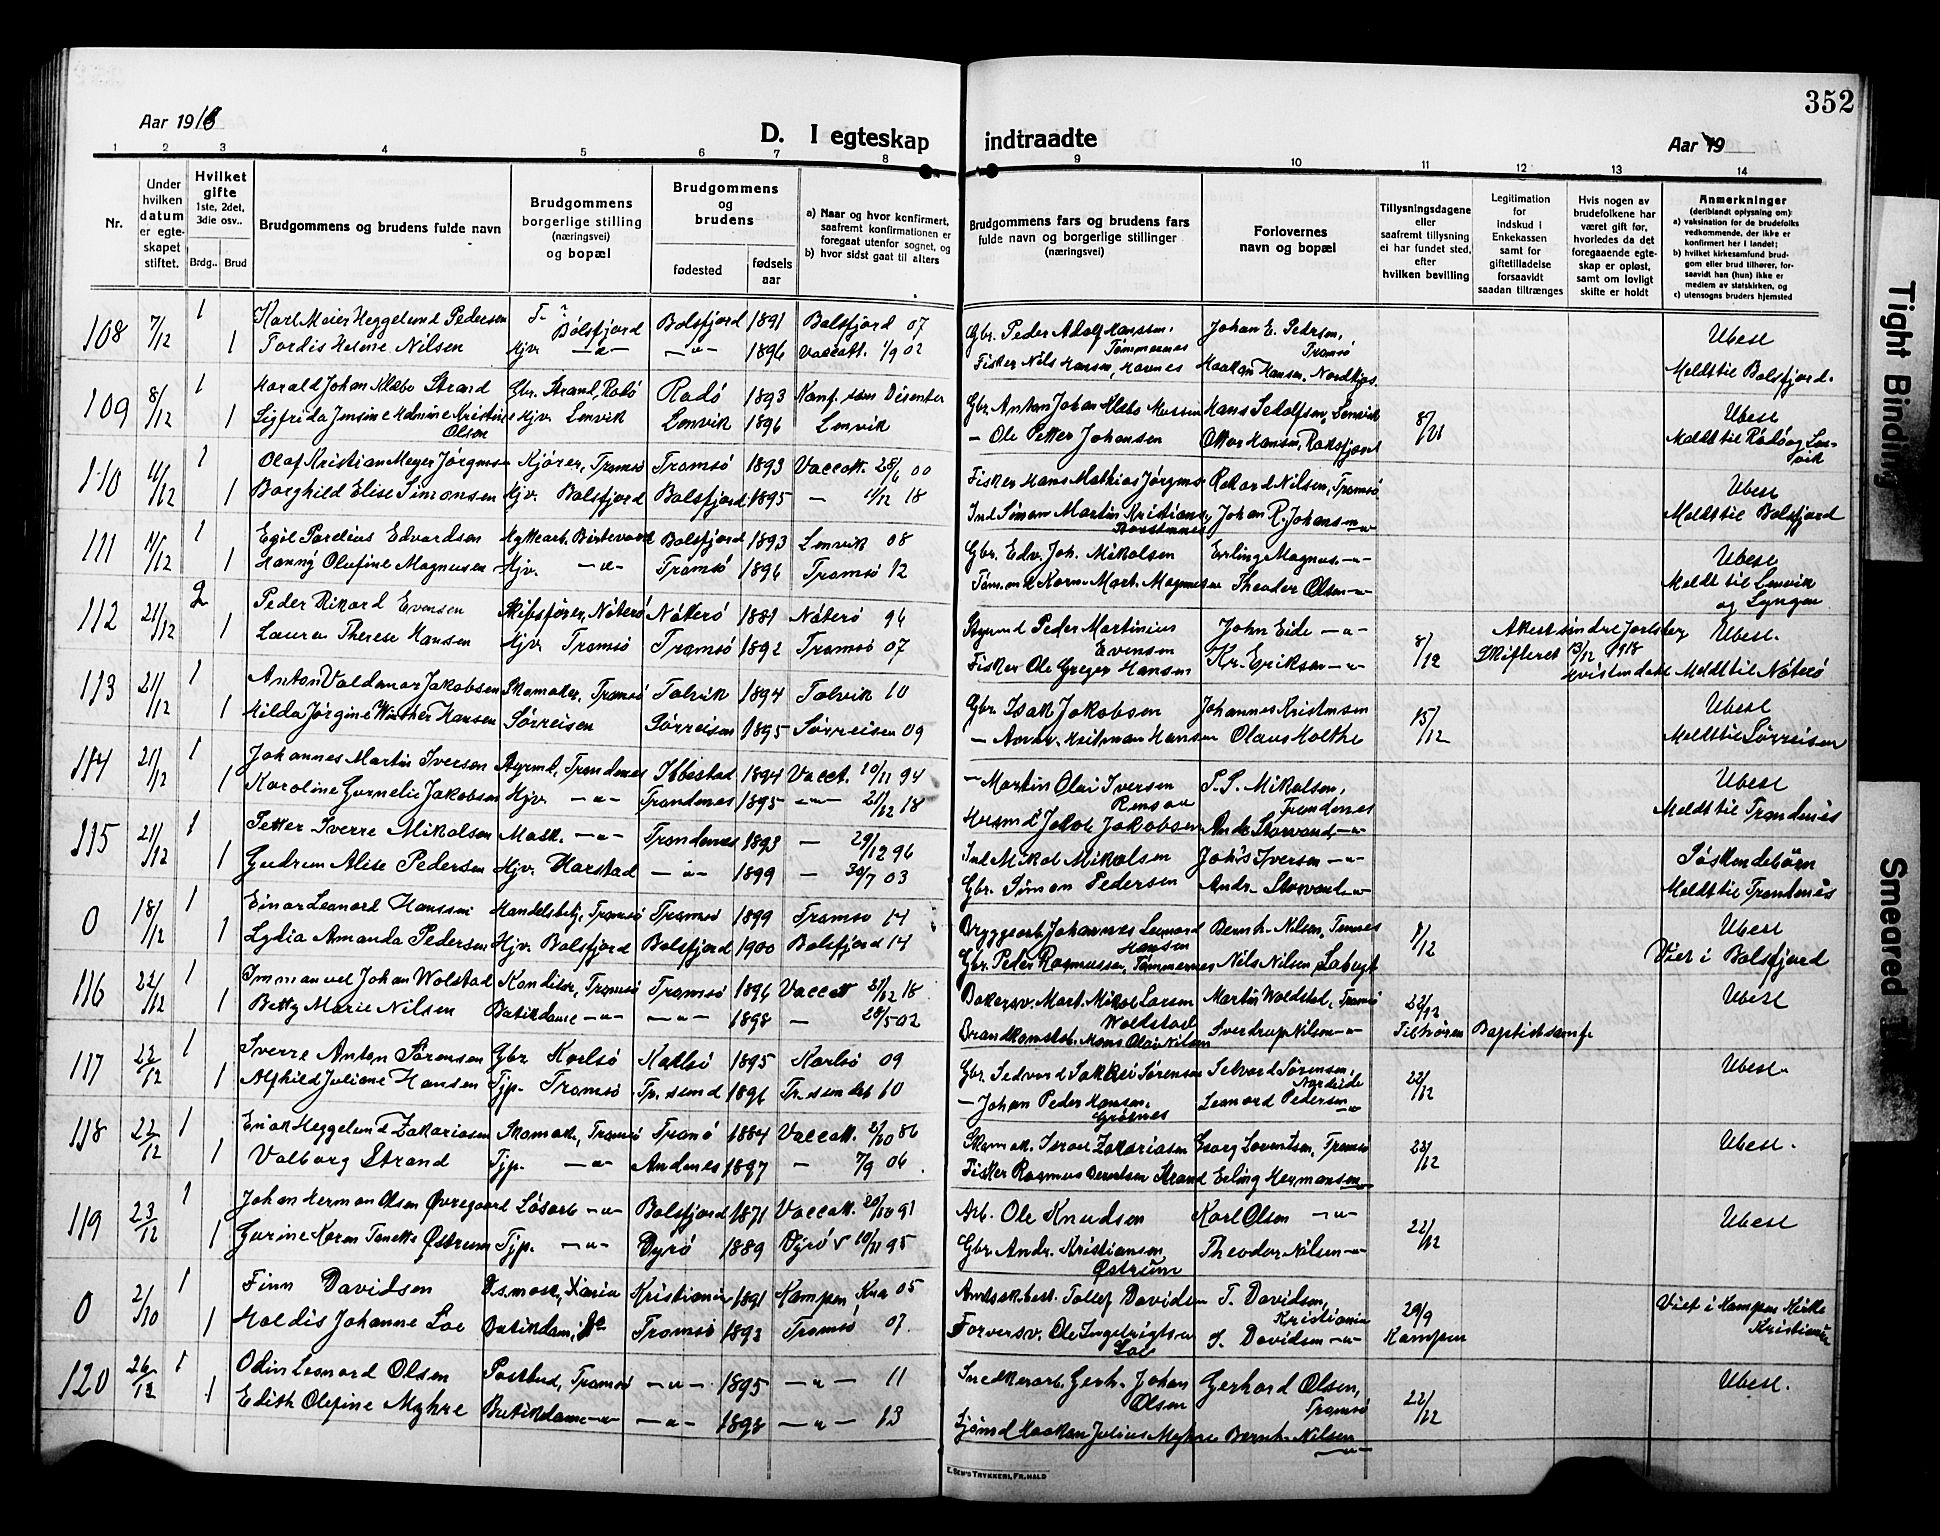 352
Aar 1918
D. I egteskap indtraadte
Aar 19
1 2 3 4 5 6 7 8 9 10 11 12 13 14
Nr.
Under hvilken datum er egteskapet stiftet.
Hvilket gifte 1ste, 2det, 3die osv..
Brdg.. Brud
Brudgommens og brudens fulde navn
Brudgommens borgerlige stilling (næringsvei) og bopæl
Brudgommens og brudens
fødested
fødsels aar
a) Naar og hvor konfirmert, saafremt konfirmationen er foregaat utenfor sognet, og
b) hvor sidst gaat til alters
Brudgommens fars og brudens fars fulde navn og borgerlige stillinger (næringsvei)
Forlovernes navn og bopæl
Tillysningsdagene eller saafremt tillysning ei har fundet sted, efter hvilken bevilling
Legitimation for Indskud i Enkekassen samt for giftetilladelse forsaavidt saadan tiltrænges
Hvis nogen av brudefolkene har været gift før, hvorledes da det foregaaende egteskap er opløst, samt om lovligt skifte er holdt
Anmerkninger (deriblandt oplysning om)
a) vaksination for de brudefolks vedkommende, der ikke er konfirmert her i landet;
b) hvilket kirkesamfund brudgom eller brud tilhører, forsaavidt han (hun) ikke er medlem av statskirken, og
c) utensogns bruders hjemsted
108 7/12 1 Karl Meier Heggelund Pedersen Balsfjord Balsfjord 1891 Balsfjord 07 Gbr. Peder Adolf Hanssen, Tømmernes Johan E. Pedersen, Tromsö Ubesl
1 Tordis Helene Nilsen Hjv. —"— —"— 1896 Vaccatt. 1/9 02 Fisker Nils Hansen, Havnes Haakon Hansen, Nordkjos Meldt til Balsfjord.
109 8/12 1 Harald Johan Klæbo Strand Gbr. Strand, Radö Radö 1893 Konf. som Disenter Gbr. Anton Johan Klæbo Lenvik 8/21 Ubesl
1 Sigfrida Jensine Kristine Olsen Hjv. Lenvik Lenvik 1896 Lenvik — Ole Petter Johansen Ottar Hansen, Meldt til Radö og Lenvik
110 11/12 1 Olaf Kristian Meyer Jörgensen Kjörer, Tromsö Tromsö 1893 Vaccatt. 28/6 00 Fisker Hans Mathias Jörgensen Rikard Nilsen, Tromsö Ubesl
1 Borghild Elise Simonsen Hjv. Balsfjord Balsfjord 1895 — 11/12 18 Ind. Simon Martin Kristians, Johan R. Johansen —"— Meldt til Balsfjord
111 11/12 1 Egil Parelius Edvardsen Balsfjord 1893 Lenvik 08 Gbr. Edv. Joh. Mikalsen Erling Magnus —"— Ubesl
1 Hanny Olufine Magnusen Hjv. —"— Tromsö 1896 Tromsö 12 Tömm. Mart. Magnusen Theodor Olsen —"— Meldt til Lenvik og Lyngen
112 21/12 2 Peder Rikard Evensen Skibsförer, Nöterö Nöterö 1881 Nöterö 96 Styrmd Peder Martinius Evensen John Eide —"— 8/12 Akerssöndre Jarlsberg Skifteret 13/12 1918 Ubesl.
1 Laura Therese Hansen Hjv. Tromsö Tromsö 1892 Tromsö 07 Fisker Ole Greger Hansen Kr. Eriksen —"— Meldt til Nöterö
113 21/12 1 Anton Valdemar Jakobsen Skomaker, Tromsö Talvik 1894 Talvik 10 Gbr. Isak Jakobsen Johannes Kristensen 15/12 Ubesl
1 Hilda Jörgine Winther Hansen Sörreisen Sörreisen 1895 Sörreisen 09 — Andr. Heitman Hansen Olaus Molthe Meldt til Sörreisen
114 21/12 1 Johannes Martin Iversen Styrmd, Trondenes Ibbestad 1894 Vacct. 10/11 94 — Martin Olai Iversen P. S. Mikalsen, Trondenes Ubesl
1 Karoline Gurnelie Jakobsen Hjv. —"— Trondenes 1895 —"— 21/12 18 Jakob Jakobsen Andr. Storvand —"— Meldt til Trondenes
115 21/12 1 Petter Sverre Mikalsen Mask. —"— Trondenes 1893 — 29/12 96 Ind. Mikal Mikalsen Johs Iversen —"— Söskendebörn
1 Gudrun Alise Pedersen Hjv. Harstad —"— 1899 — 30/7 03 Gbr. Simon Pedersen Andr. Storvand —"— Meldt til Trondenes
0 18/12 1 Einar Leonard Hanssen Handelsbetj., Tromsö Tromsö 1899 Tromsö 14 Bryggearb. Johannes Leonard Hansen Bernh. Nilsen, Tennes 8/12 Ubesl
1 Lydia Amanda Pedersen Hjv. Balsfjord Balsfjord 1900 Balsfjord 14 Gbr. Peder Rasmussen, Tømmernes Nils Nilsen, Viet i Balsfjord
116 22/12 1 Immanuel Johan Wolstad Konditor, Tromsö Tromsö 1896 Vaccatt 21/12 18 Bakersv. Mart. Mikal Larsen Woldstad Martin Woldstad, Tromsö 22/12 Ubesl
1 Betty Marie Nilsen Butikdame —"— —"— 1898 — 28/5 02 Brandkonstab. Hans Olai Nilsen Sverdrup Nilsen —"— Tilhören Baptistsamf.
117 22/12 1 Sverre Anton Sörensen Gbr Karlsö Karlsö 1895 Karlsö 09 Gbr. Sedvard Sörensen Selvard Sörensen, 22/12 Ubesl.
1 Alfhild Juliane Hansen Tjp. Tromsö Tr. sund 1896 Tr. sundet 10 — Johan Peder Hansen, Grönnes Leonard Pedersen —"—
118 22/12 1 Einar Heggelund Zakariasen Skomak., Tromsö Tranö 1884 Vaccatt. 2/10 86 Skomak. Israel Zakariasen Georg Lorentsen, Tromsö 22/12 Ubesl.
1 Valborg Strand Tjp. —"— Andenes 1897 — 7/9 06 Fisker Rasmus Berntsen Strand Erling Hermansen —"—
119 23/12 1 Johan Herman Olsen Øvregaard Løsarb —"— Balsfjord 1871 Vaccatt. 20/10 91 Arb. Ole Knudsen Karl Olsen —"— 22/12 Ubesl
1 Gurine Karen Tanette Østrum Tjp. —"— Dyrö 1889 Dyröy 10/11 95 Gbr. Andr. Kristiansen Østrum Theodor Nilsen —"—
0 2/10 1 Finn Davidsen Kristiania 1891 Kampen Kra 05 Amtssk.best. Tollef Davidsen T. Davidsen, Kristiania 29/9 Kampen Viet i Kampen Kirke Kristiania
1 Haldis Johanne Loe Butikdam, Tromsö 1893 Tromsö 07. Farversv. Ole Ingebrigtsen Loe S. Davidsen —"—
120 26/12 1 Odin Leonard Olsen Postbud, Tromsö —"— 1895 —"— 11 Snedkerarb. Gerh. Johan Olsen Gerhard Olsen, Tromsö 22/12 Ubesl.
1 Edith Olefine Myhre Butikdame —"— —"— 1898 —"— 13 Sjömd Haakon Julius Myhre Bernh. Nilsen —"—
E. SEM'S TRYKKERI, FR.HALD
Tight Binding
Smeared